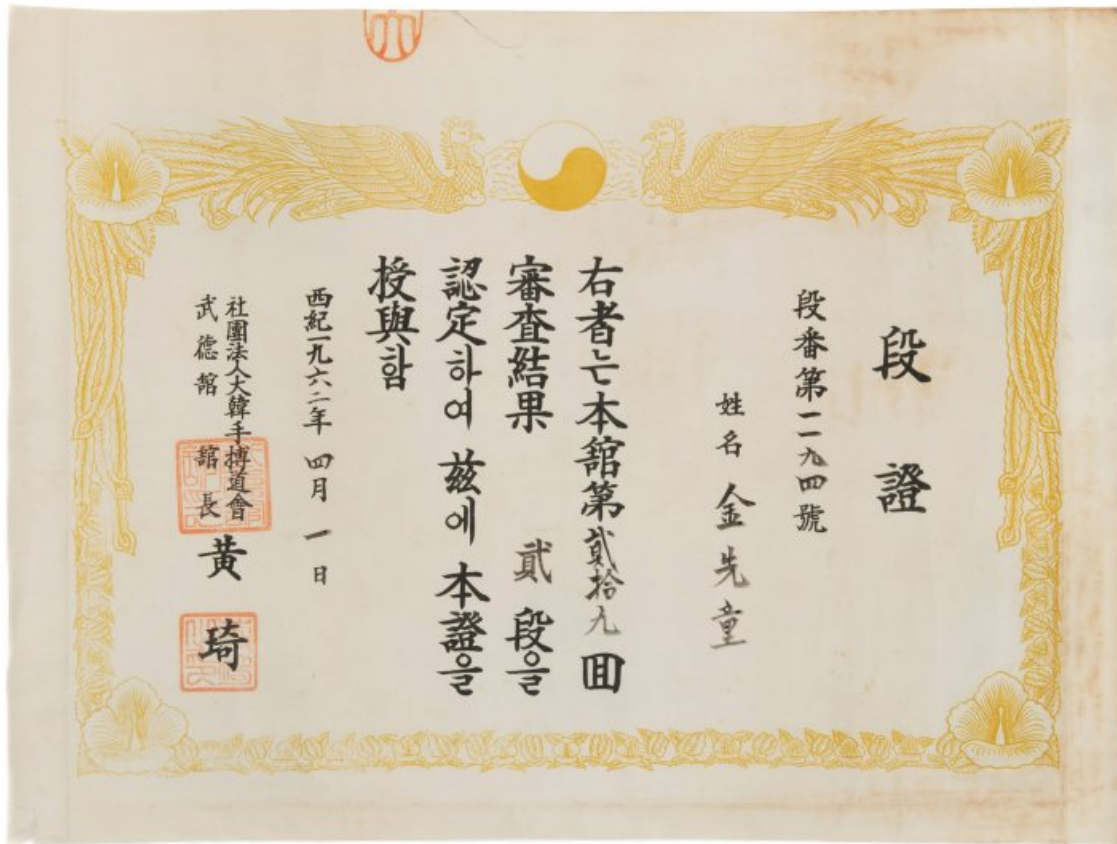 段證
段番第二一九四號
姓名 金先童
右者는本舘第貳拾九回
審査結果 貳段을
認定하여 玆에 本證을
授與함
西紀一九六二年 四月 一日
社團法人大韓手搏道會
武德舘 舘長 黃琦